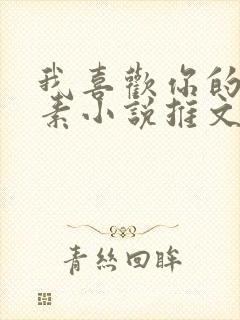 我喜歡你的
素小說推文
青絲回眸